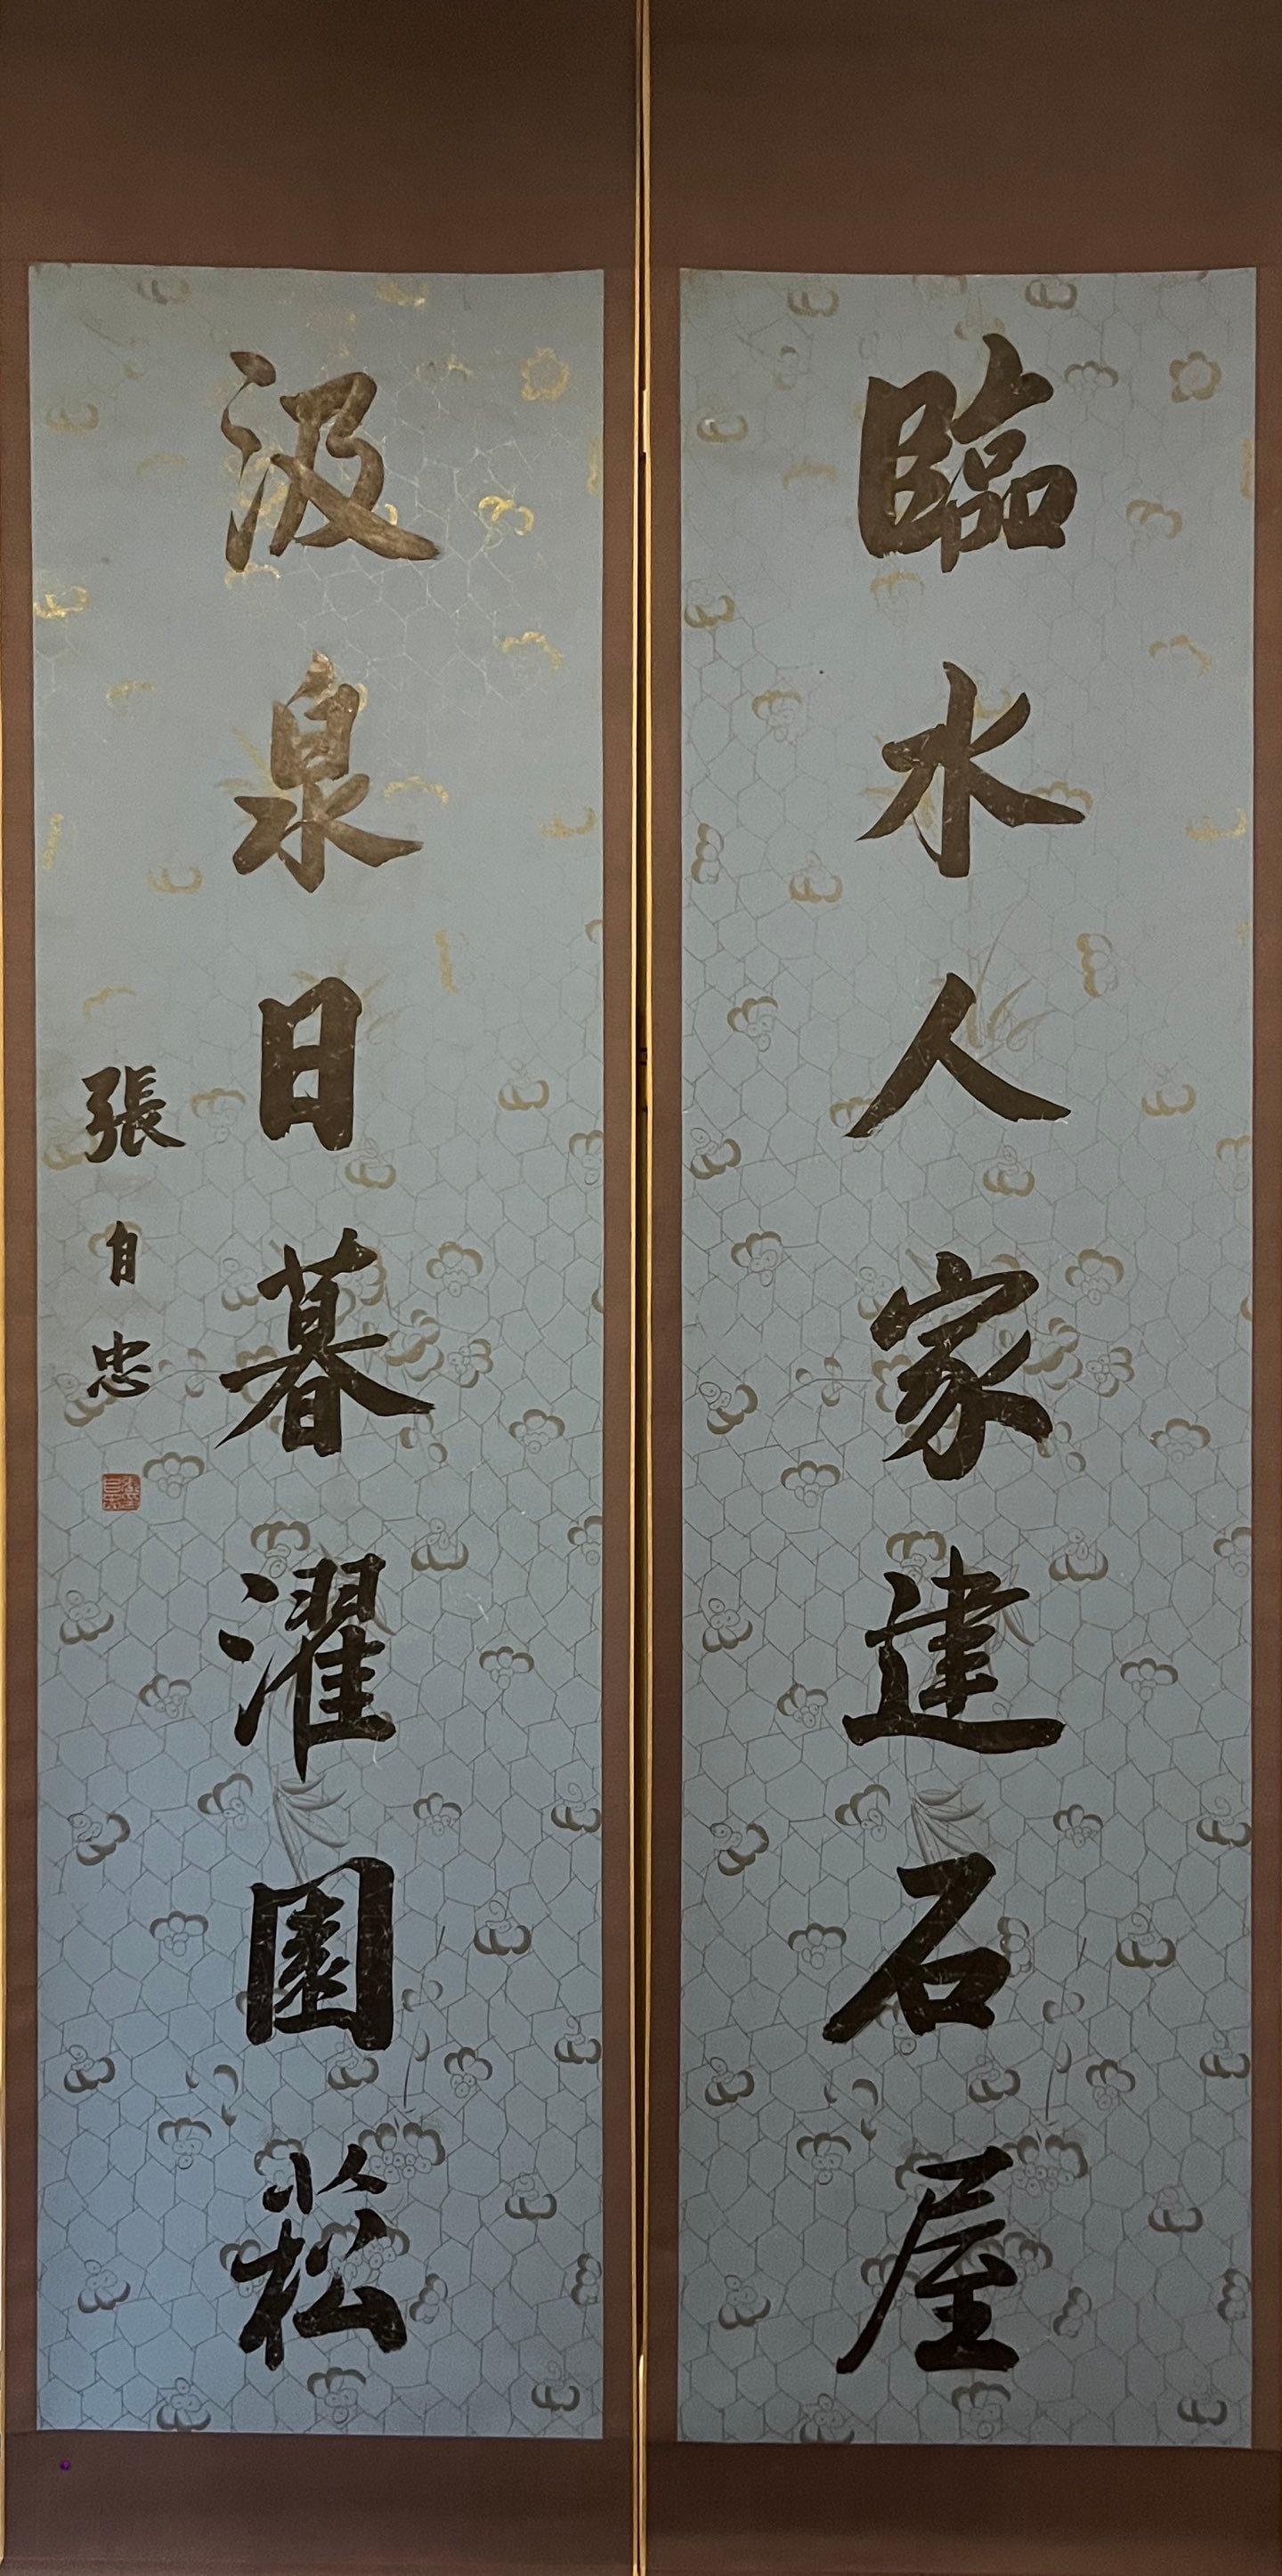 臨水人家建石屋
汲泉日暮濯園菘
張自忠